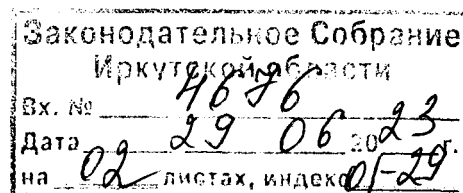 Законодательное Собрание
Иркутской области
Вх. № 4676
Дата 29 06 2023 г.
на 02 листах, индекс 01-29